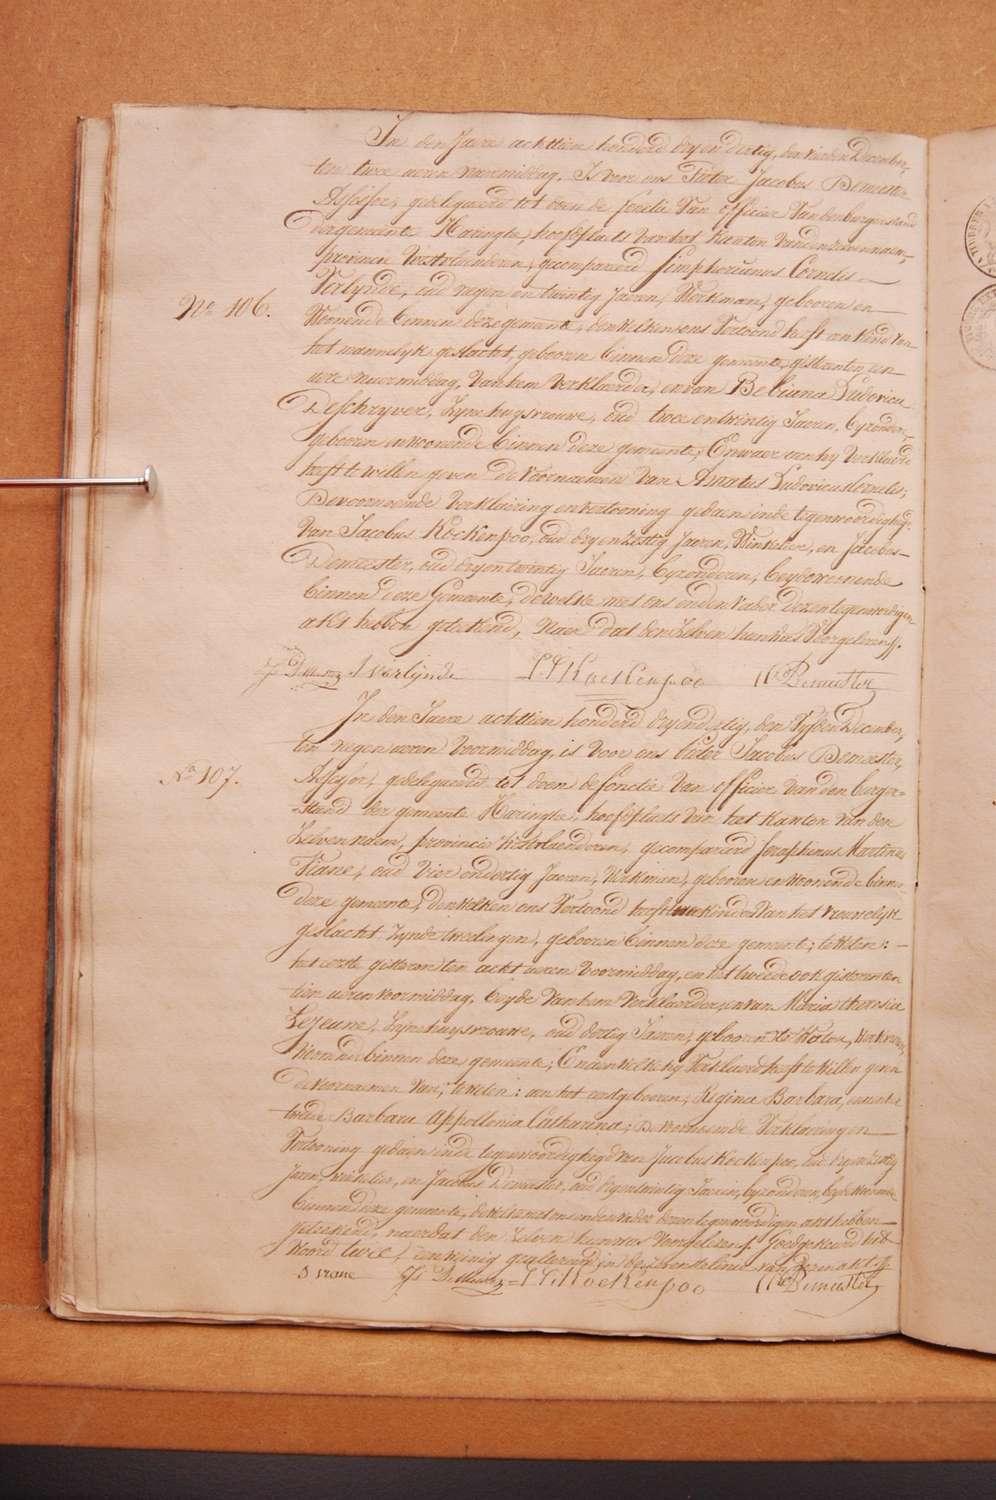 In den Jaere achttien honderd dry en dertig, den vierden December,
ten twee ueren naermiddag, Is voor ons Pieter Jacobus Demeester
Assessor, gedelegueerd tot doen de fonctie van officier van den burgerstand
der gemeente Haringhe, hoofdplaets van het Kanton van den zelven naem,
provincie Westvlaenderen, gecompareerd Simphorianus Cornelis
Verlynde, oud negen en twintig Jaeren, Werkman, geboren en
Woonende binnen deze gemeente, den welken ons Vertoond heeft een Kind van
No 106.
het mannelyk geslacht, geboren binnen deze gemeente, gisteren ten een
uere naermiddag, van hem verklaerder, en van Bebiana Ludovica
Deschryver, zyne huysvrouwe, oud twee en twintig Jaeren, byzondere,
geboren en woonende binnen deze gemeente, En waer aen hy verklaerd
heeft te willen geven de Voornaemen van Amatus Ludovicus Cornelis;
De voornoemde verklaering en vertooning gedaen in de tegenwoordigheyd
van Jacobus Kockenpoo, oud dry en zestig Jaeren, Winkelier, en Jacobus
Demeester, oud dry en twintig Jaeren, byzonderen, beyde woonende
binnen deze Gemeente, de welke met ons en den vader dezen tegenwoordigen
akt hebben geteekend, Naer dat den zelven hun was Voorgelezen.
S verlynde J J Kockenpoo Demeester
In den Jaere achttien honderd dry en dertig, den vyfden December,
ten negen ueren voormiddag, is voor ons Pieter Jacobus Demeester,
No 107.
Assessor, gedelegueerd tot doen de fonctie van officier van den burger-
stand der gemeente Haringhe, hoofdplaets van het Kanton van den
Zelven naem, provincie Westvlaenderen, gecompareerd Seraphinus Martinus
Vrane, oud vier en dertig Jaeren, Werkman, geboren en woonende binnen
deze gemeente, den welken ons Vertoond heeft twee kinders van het vrouwelyk
geslacht zynde tweelingen, geboren binnen deze gemeente, te weten:
het eerste gisteren ten acht ueren voormiddag, en het tweede ook gisteren ten
tien ueren voormiddag, beyde van hem verklaerder, en van Maria theresia
Lejeune, zyne huysvrouwe, oud dertig Jaeren, geboren te Watou, Werkvrouw,
Woonende binnen deze gemeente; En aen welke hy Verklaerd heeft te willen geven
de voornaemen van, te weten: aen het eerstgeboren, Regina Barbara, en aen het
tweede Barbara Appollonia Catharina; De voornoemde Verklaering en
Vertooning gedaen in de tegenwoordigheyd van Jacobus Kockenpoo, oud dry en zestig
Jaeren, winkelier, en Jacobus Demeester, oud dry en twintig Jaeren, byzonderen, beyde woonende
binnen deze gemeente, de welke met ons en den vader dezen tegenwoordigen akt hebben
geteekend, naer dat den Zelven hun was voorgelezen. Goedgekeurd het
Woord twee, een weinig gealtereerd in de linie van dezen akt.
S vrane J J Kockenpoo Demeester